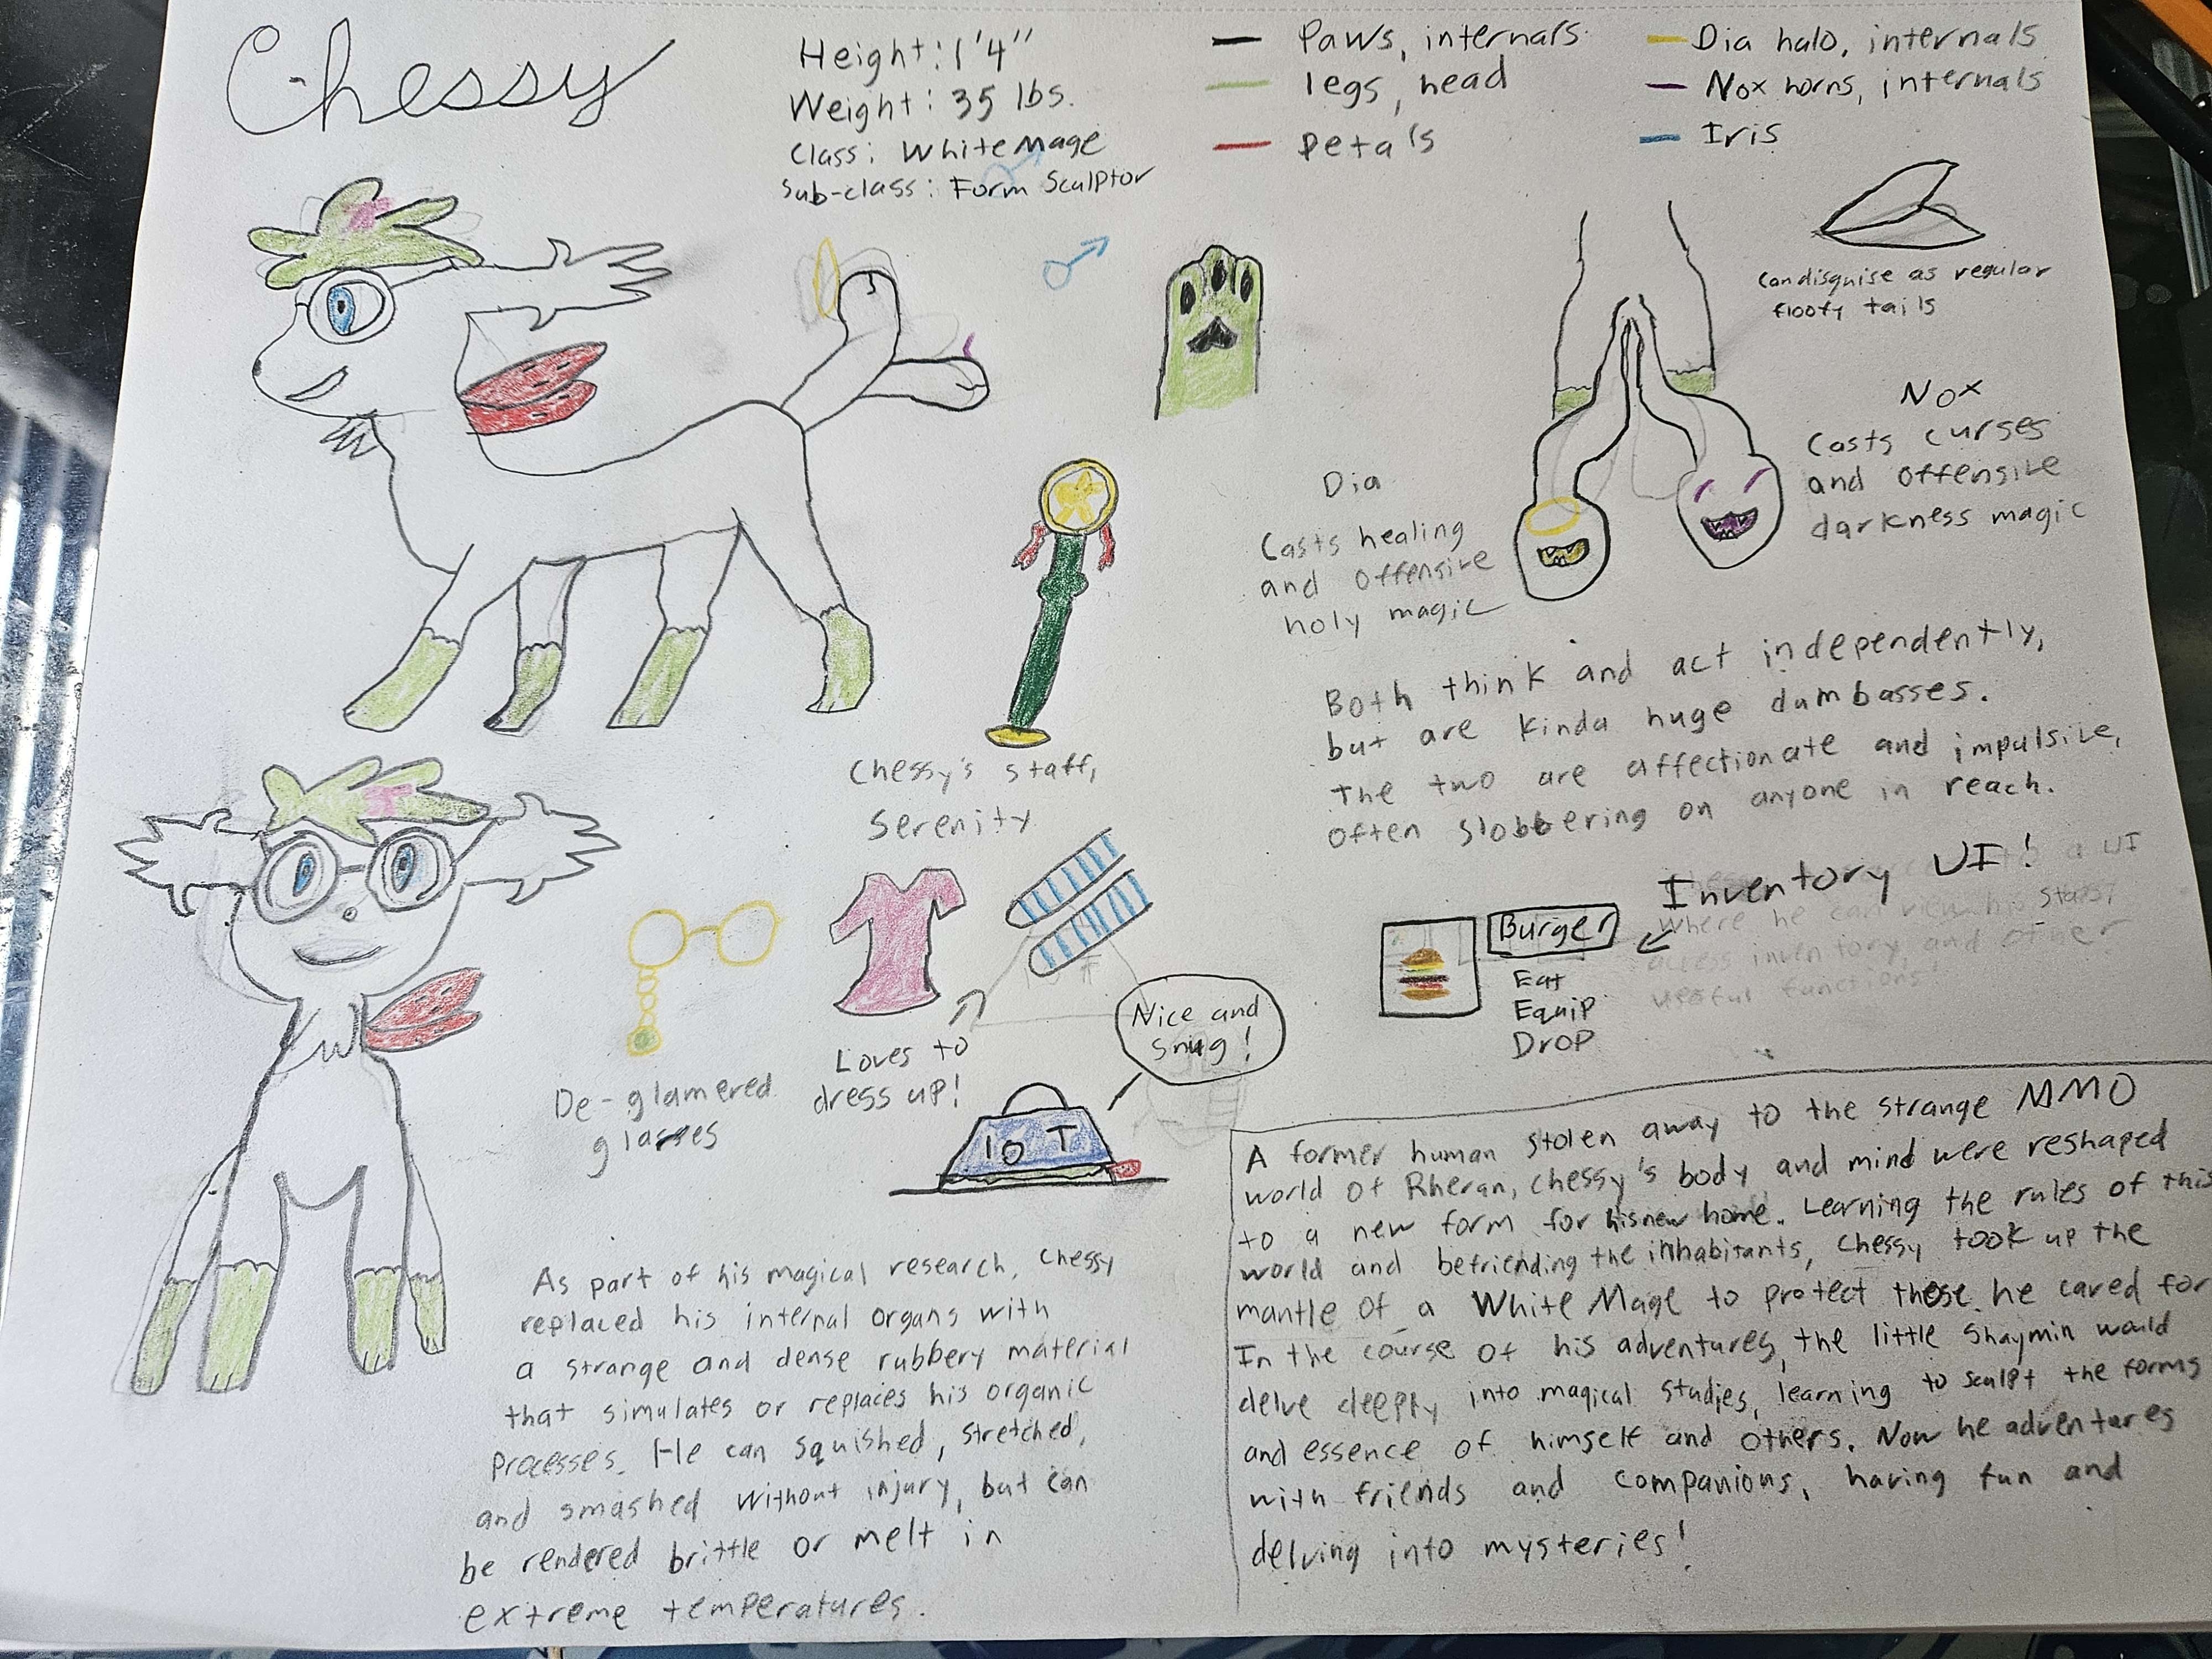 Chessy
Height: 1'4"
Weight: 35 lbs.
Class: White Mage
Sub-class: Form Sculptor
Paws, internals
legs, head
Petals
Dia halo, internals
Nox horns, internals
Iris
Can disguise as regular
floofy tails
Nox
Casts curses
and offensive
darkness magic
Dia
Casts healing
and offensive
holy magic
Both think and act independently,
but are kinda huge dumbasses.
The two are affectionate and impulsive,
often slobbering on anyone in reach.
Chessy's staff,
Serenity
Inventory UI!
to a UI
where he can view his stats,
access inventory, and other
useful functions!
Burger
Eat
Equip
Drop
De-glamered
glasses
Loves to
dress up!
Nice and
snug!
10 T
As part of his magical research, Chessy
replaced his internal organs with
a strange and dense rubbery material
that simulates or replaces his organic
processes. He can squished, stretched,
and smashed without injury, but can
be rendered brittle or melt in
extreme temperatures.
A former human stolen away to the strange MMO
world of Rheran, Chessy's body and mind were reshaped
to a new form for his new home. Learning the rules of this
world and befriending the inhabitants, Chessy took up the
mantle of a White Mage to protect those he cared for
In the course of his adventures, the little Shaymin would
delve deeply into magical studies, learning to sculpt the forms
and essence of himself and others. Now he adventures
with friends and companions, having fun and
delving into mysteries!